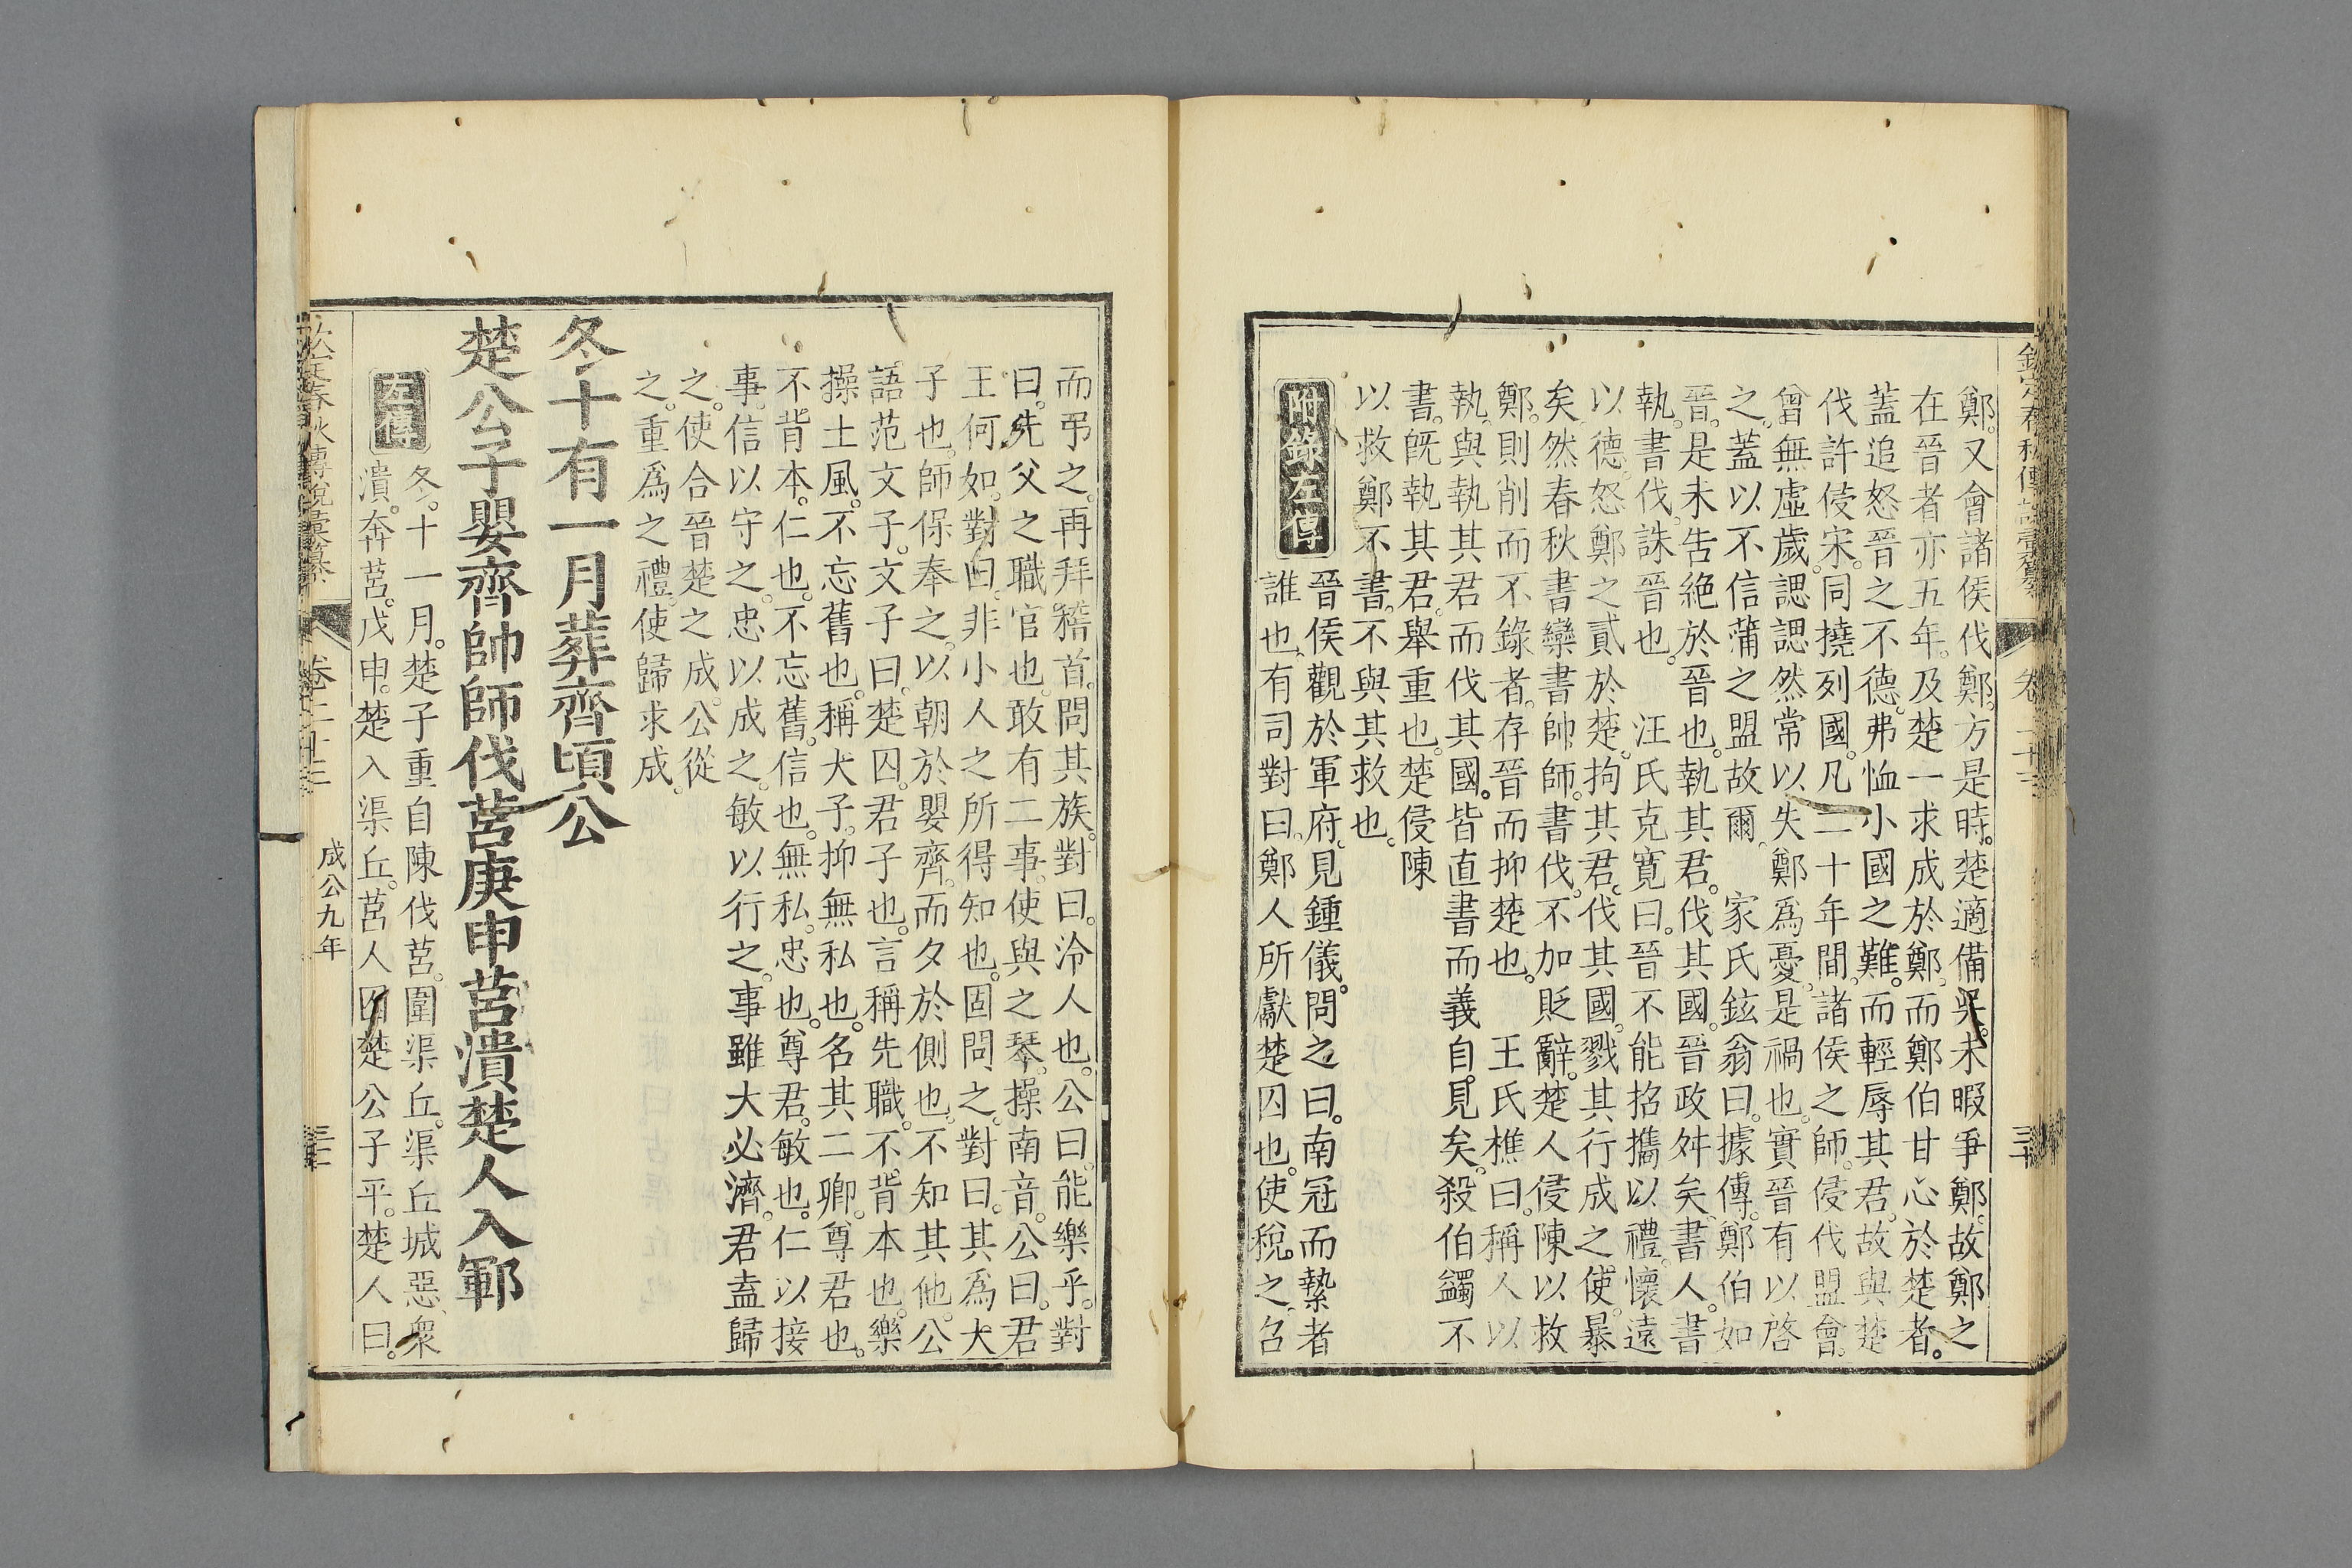 欽定春秋傳說彙纂 卷二十三
鄭。又會諸侯伐鄭。方是時。楚適備吳。未暇爭鄭。故鄭之
在晉者亦五年。及楚一求成於鄭。而鄭伯甘心於楚者。
蓋追怒晉之不德。弗恤小國之難。而輕辱其君。故與楚
伐許侵宋。同撓列國。凡二十年間。諸侯之師。侵伐盟會。
曾無虛歲。諰諰然常以失鄭為憂。是禍也。實晉有以啓
之。蓋以不信蒲之盟故爾。 家氏鉉翁曰。據傳。鄭伯如
晉。是未吿絕於晉也。執其君。伐其國。晉政舛矣。書人。書
執。書伐。誅晉也。 汪氏克寬曰。晉不能招攜以禮。懷遠
以德。怒鄭之貳於楚。拘其君。伐其國。戮其行成之使。暴
矣。然春秋書欒書帥師。書伐。不加貶辭。楚人侵陳以救
鄭。則削而不錄者。存晉而抑楚也。 王氏樵曰。稱人以
執。與執其君而伐其國。皆直書而義自見矣。殺伯蠲不
書。旣執其君。舉重也。楚侵陳
以救鄭不書。不與其救也。
附錄左傳 晉侯觀於軍府。見鍾儀。問之曰。南冠而縶者
誰也。有司對曰。鄭人所獻楚囚也。使稅之。召
而弔之。再拜稽首。問其族。對曰。泠人也。公曰。能樂乎。對
曰。先父之職官也。敢有二事。使與之琴。操南音。公曰。君
王何如。對曰。非小人之所得知也。固問之。對曰。其為大
子也。師保奉之。以朝於嬰齊。而夕於側也。不知其他。公
語范文子。文子曰。楚囚。君子也。言稱先職。不背本也。樂
操土風。不忘舊也。稱大子。抑無私也。名其二卿。尊君也。
不背本。仁也。不忘舊。信也。無私。忠也。尊君。敏也。仁以接
事。信以守之。忠以成之。敏以行之。事雖大必濟。君盍歸
之。使合晉楚之成。公從
之。重為之禮。使歸求成。
冬十有一月葬齊頃公
楚公子嬰齊帥師伐莒庚申莒潰楚人入鄆
左傳 冬。十一月。楚子重自陳伐莒。圍渠丘。渠丘城惡。衆
潰。奔莒。戊申。楚入渠丘。莒人囚楚公子平。楚人曰。
欽定春秋傳說彙纂 卷二十三 成公九年